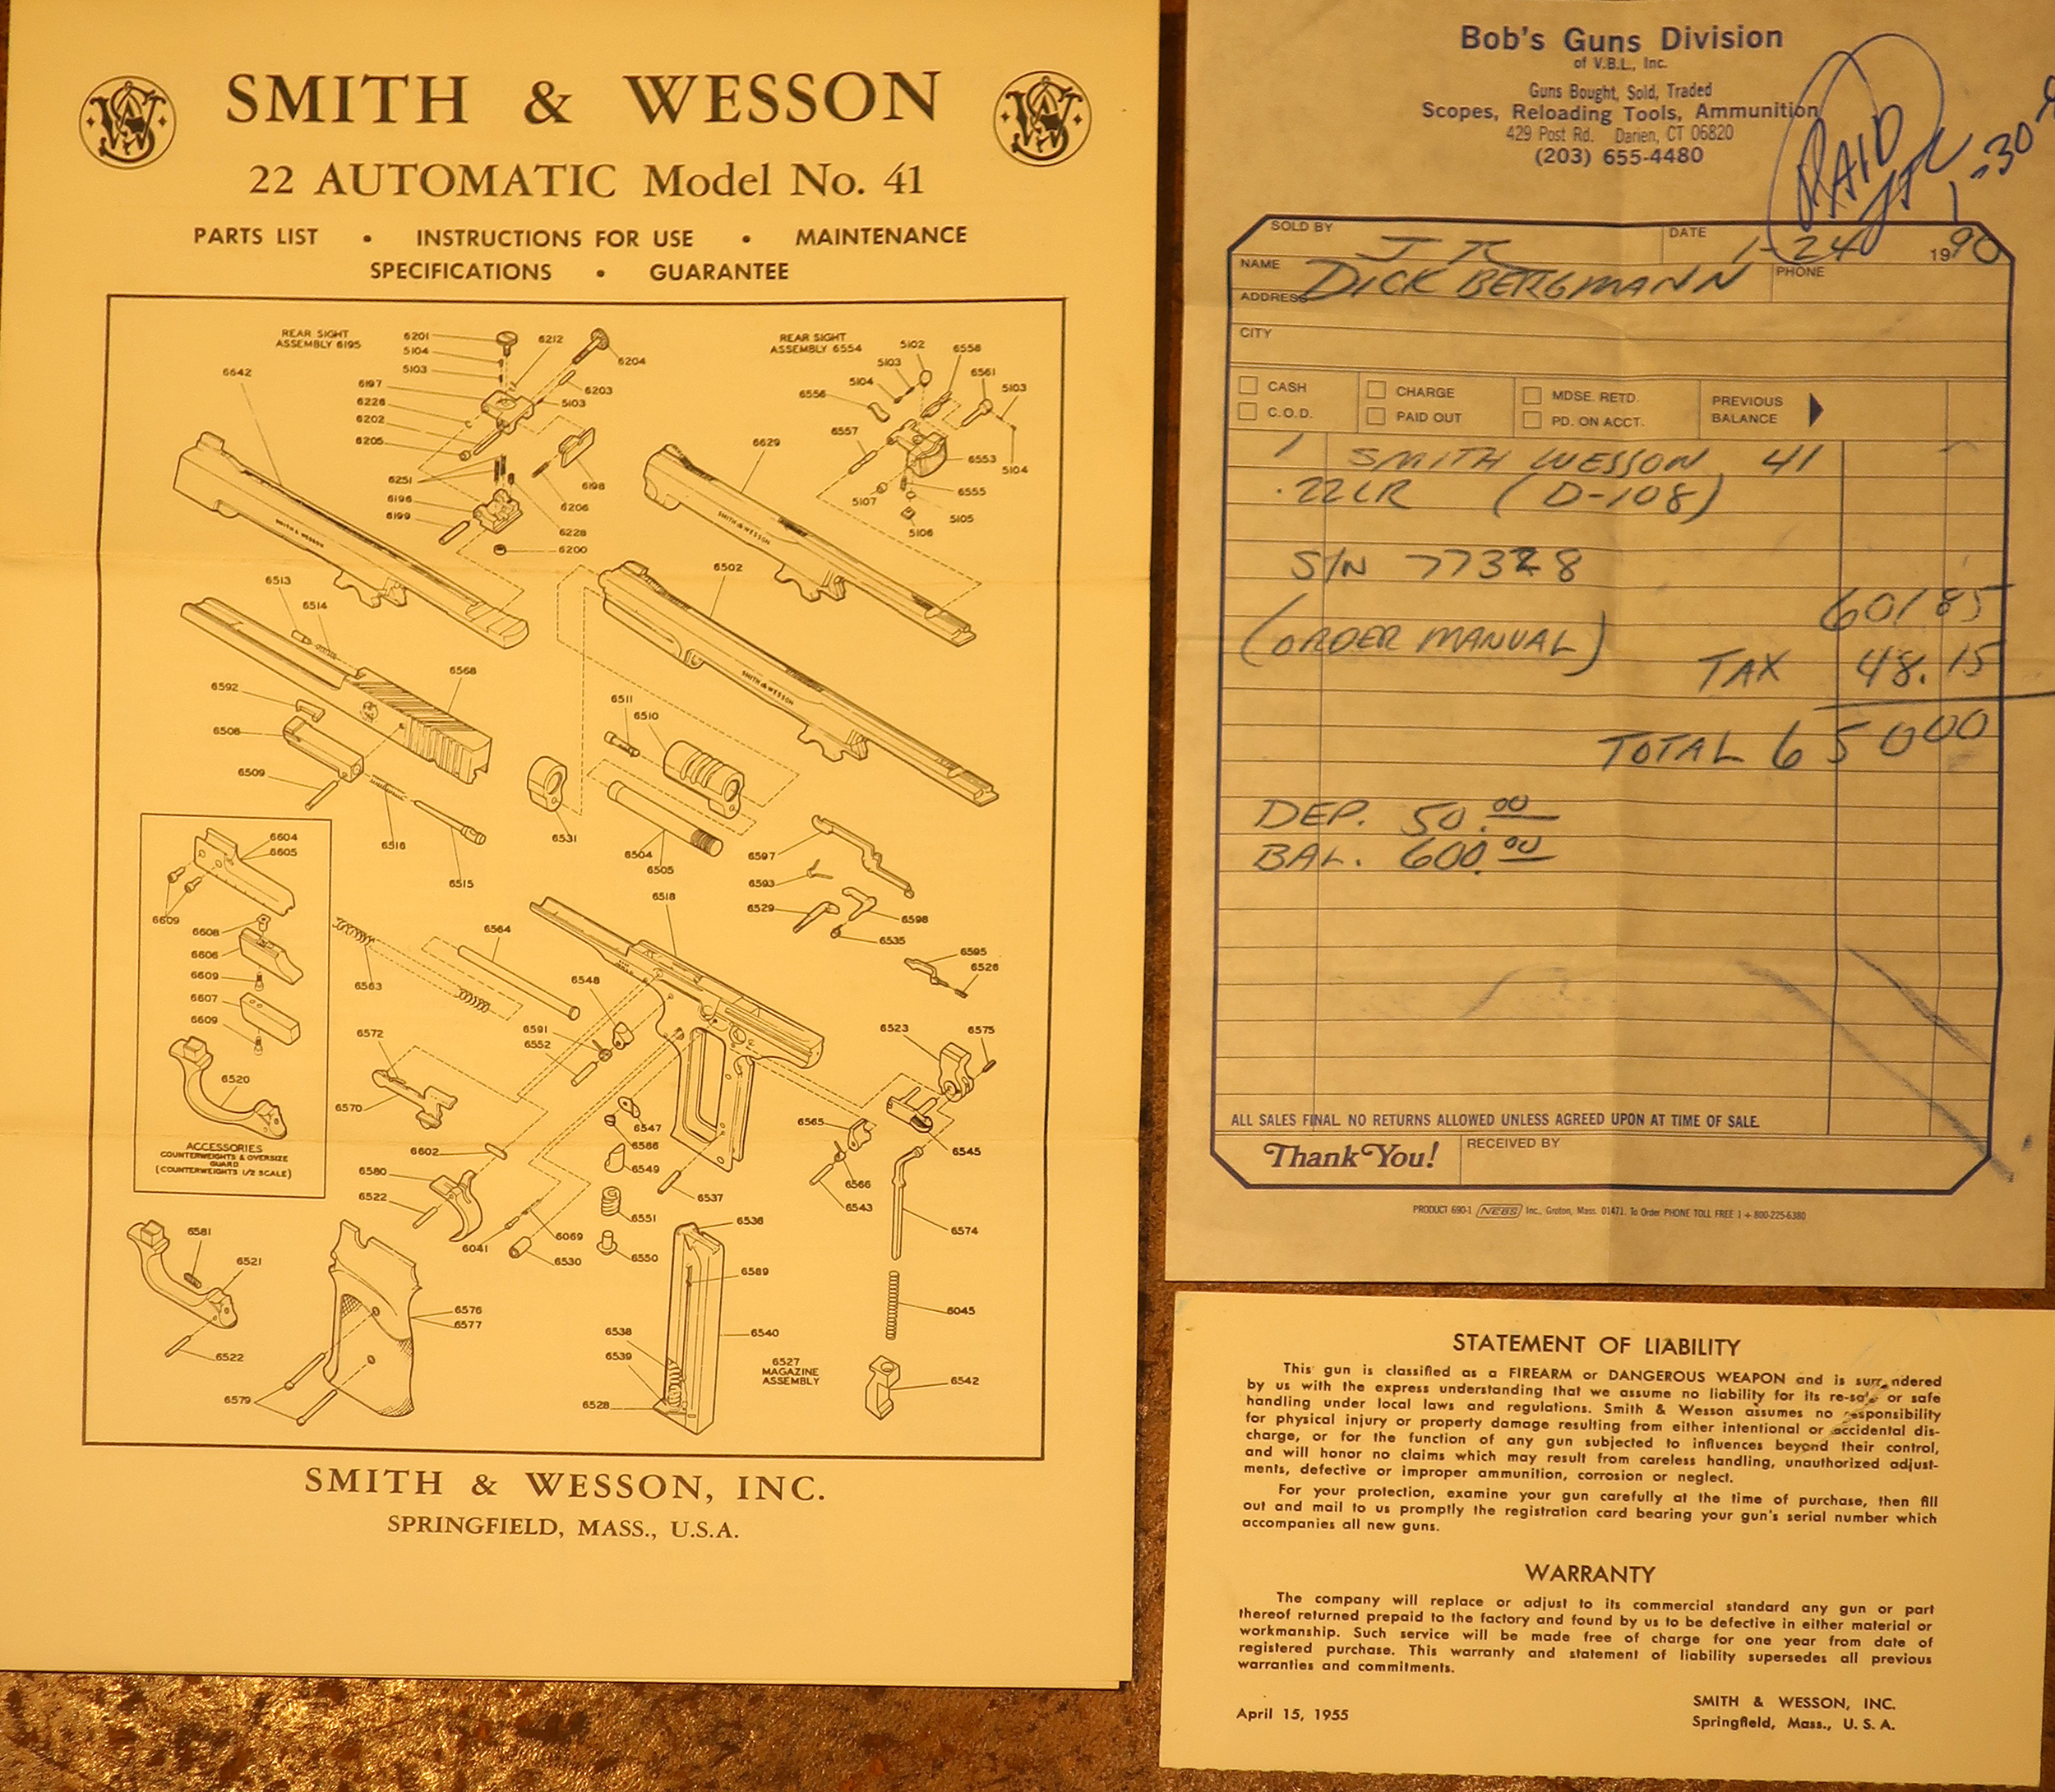 SMITH & WESSON
22 AUTOMATIC Model No. 41
PARTS LIST • INSTRUCTIONS FOR USE • MAINTENANCE
SPECIFICATIONS • GUARANTEE
REAR SIGHT
ASSEMBLY 6195
6201
5104
5103
6212
6204
6197
6203
6226
5103
6202
6205
6251
6198
6196
6206
6199
6228
6200
6642
REAR SIGHT
ASSEMBLY 6554
5102
6558
5103
6561
5104
5103
6556
6557
6553
5104
5107
6555
5105
5106
6629
SMITH & WESSON
SMITH & WESSON
6513
6514
6502
6568
SMITH & WESSON
6592
6511
6510
6508
6509
6516
6531
6504
6505
6515
6597
6593
6529
6598
6535
6604
6605
6609
6608
6606
6609
6607
6609
6520
ACCESSORIES
COUNTERWEIGHTS & OVERSIZE
GUARD
(COUNTERWEIGHTS 1/2 SCALE)
6518
6564
6563
6548
6595
6526
6591
6552
6523
6575
6572
6570
6547
6586
6565
6545
6602
6549
6580
6566
6522
6537
6543
6551
6536
6574
6041
6069
6530
6550
6581
6521
6589
6576
6577
6045
6522
6538
6540
6539
6527
MAGAZINE
ASSEMBLY
6542
6579
6528
SMITH & WESSON, INC.
SPRINGFIELD, MASS., U.S.A.
Bob's Guns Division
of V.B.L., Inc.
Guns Bought, Sold, Traded
Scopes, Reloading Tools, Ammunition
429 Post Rd. Darien, CT 06820
(203) 655-4480
PAID
1-30-
SOLD BY JK DATE 1-24 1990
NAME DICK BERGMANN PHONE
ADDRESS
CITY
CASH CHARGE MDSE. RETD. PREVIOUS
C.O.D. PAID OUT PD. ON ACCT. BALANCE
1 SMITH WESSON 41
.22LR (D-108)
S/N 77328
601 85
(ORDER MANUAL) TAX 48.15
TOTAL 650 00
DEP. 50.00
BAL. 600.00
ALL SALES FINAL. NO RETURNS ALLOWED UNLESS AGREED UPON AT TIME OF SALE.
Thank You! RECEIVED BY
PRODUCT 690-1 NEBS Inc., Groton, Mass. 01471. To Order PHONE TOLL FREE 1 + 800-225-6380
STATEMENT OF LIABILITY
This gun is classified as a FIREARM or DANGEROUS WEAPON and is surrendered
by us with the express understanding that we assume no liability for its re-sale or safe
handling under local laws and regulations. Smith & Wesson assumes no responsibility
for physical injury or property damage resulting from either intentional or accidental dis-
charge, or for the function of any gun subjected to influences beyond their control,
and will honor no claims which may result from careless handling, unauthorized adjust-
ments, defective or improper ammunition, corrosion or neglect.
For your protection, examine your gun carefully at the time of purchase, then fill
out and mail to us promptly the registration card bearing your gun's serial number which
accompanies all new guns.
WARRANTY
The company will replace or adjust to its commercial standard any gun or part
thereof returned prepaid to the factory and found by us to be defective in either material or
workmanship. Such service will be made free of charge for one year from date of
registered purchase. This warranty and statement of liability supersedes all previous
warranties and commitments.
April 15, 1955
SMITH & WESSON, INC.
Springfield, Mass., U. S. A.